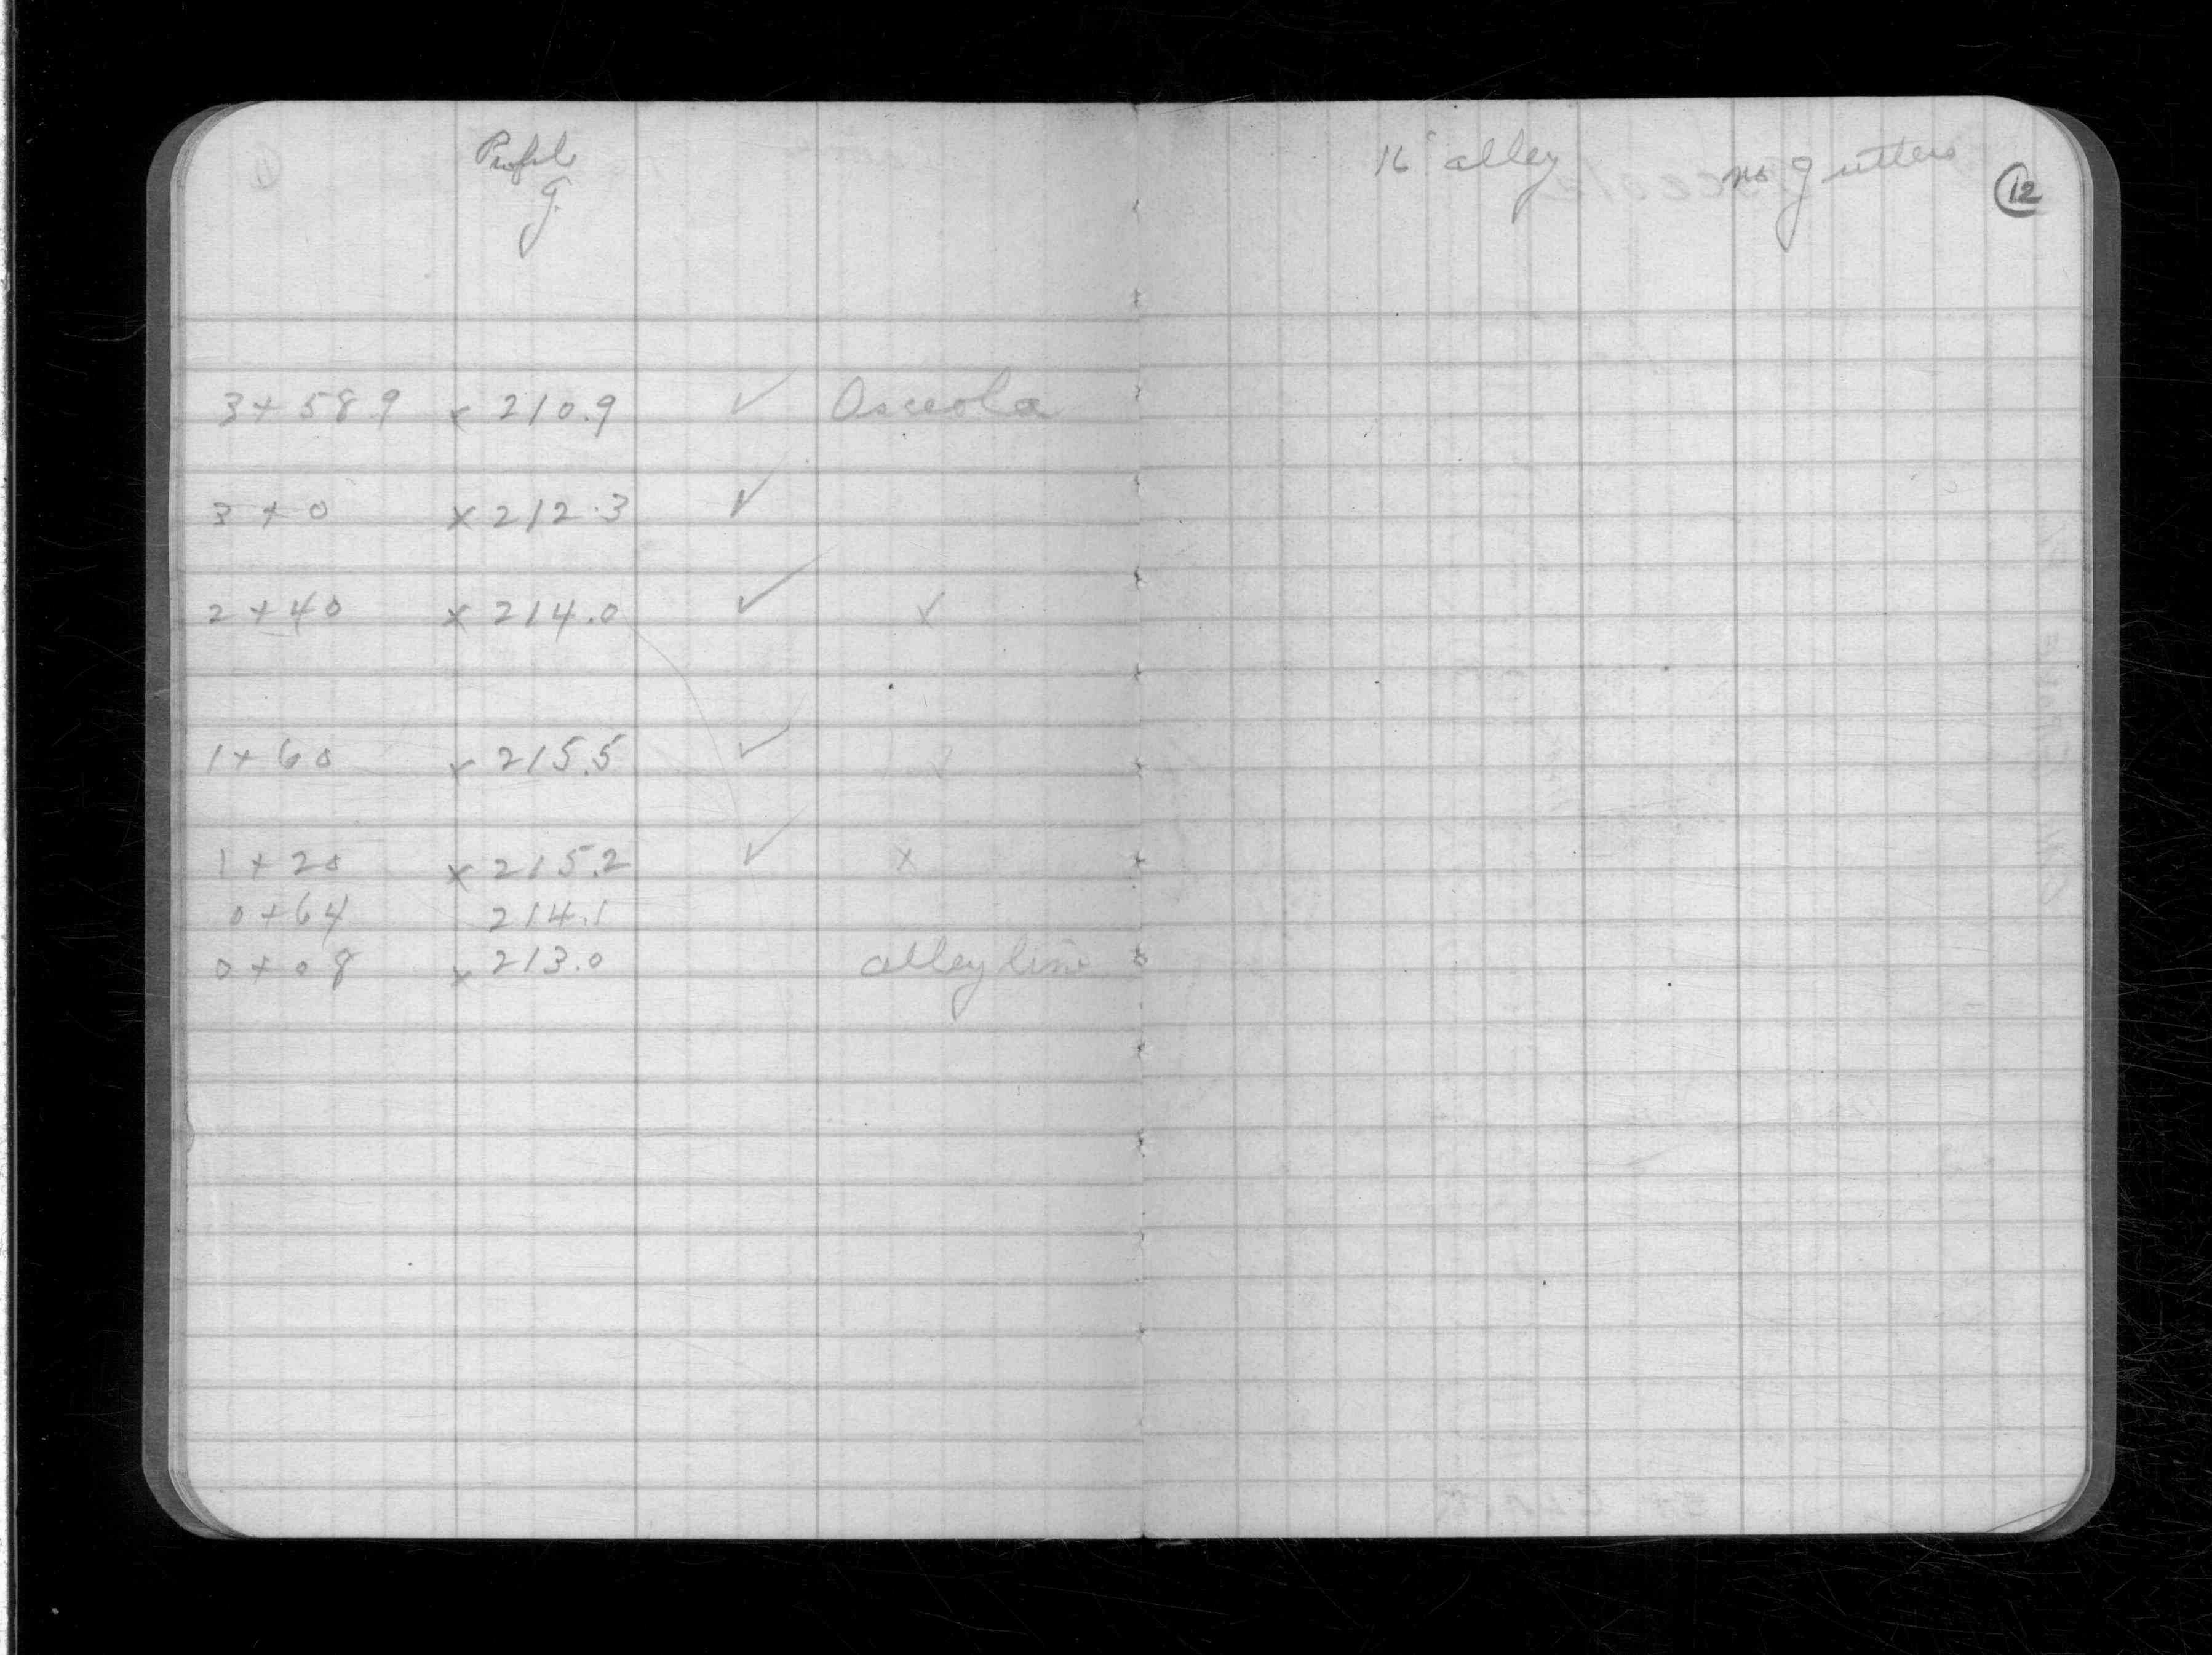 Profile
G.
16' alley no gutters
12
3+58.9 x 210.9 ✓ Osceola
3+0 x 212.3 ✓
2+40 x 214.0 ✓ x
1+60 x 215.5 ✓ x
1+20 x 215.2 ✓ x
0+64 214.1
0+08 x 213.0 alley line